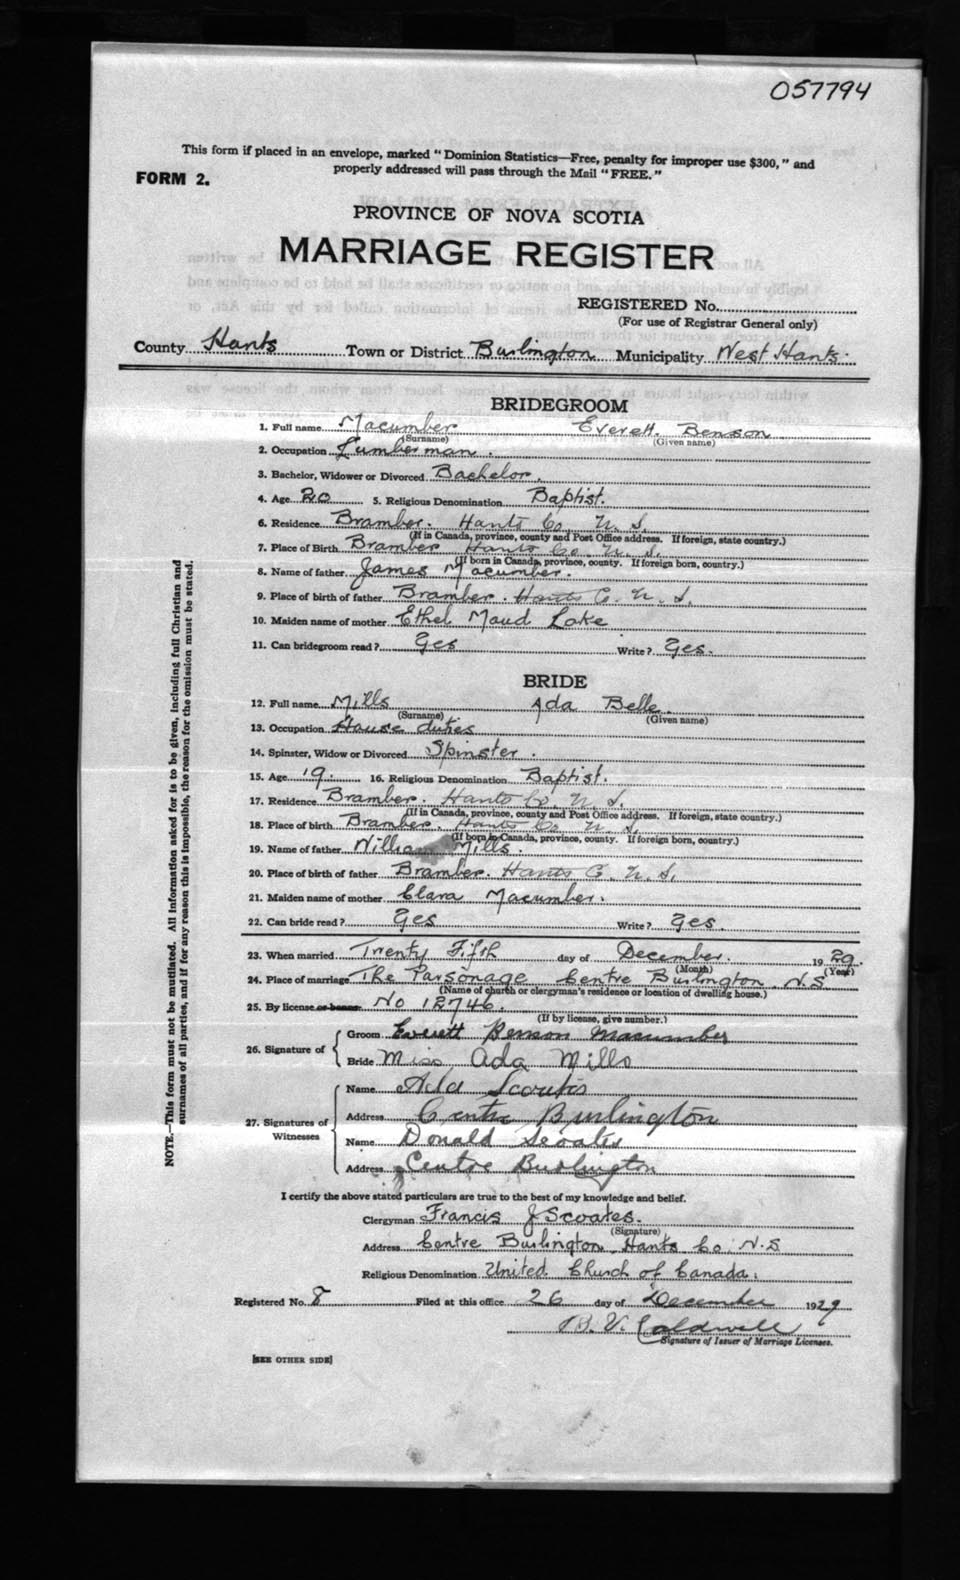 057794
This form if placed in an envelope, marked "Dominion Statistics—Free, penalty for improper use $300," and
properly addressed will pass through the Mail "FREE."
FORM 2.
PROVINCE OF NOVA SCOTIA
MARRIAGE REGISTER
REGISTERED No.
(For use of Registrar General only)
County Hants Town or District Burlington Municipality West Hants.
BRIDEGROOM
1. Full name Macumber Everett. Benson
(Surname) (Given name)
2. Occupation Lumberman.
3. Bachelor, Widower or Divorced Bachelor.
4. Age 20 5. Religious Denomination Baptist.
6. Residence Bramber. Hants Co N. S.
(If in Canada, province, county and Post Office address. If foreign, state country.)
7. Place of Birth Bramber Hants Co. N. S.
(If born in Canada, province, county. If foreign born, country.)
8. Name of father James Macumber.
9. Place of birth of father Bramber. Hants C. N. S.
10. Maiden name of mother Ethel Maud Lake
11. Can bridegroom read? Yes Write? Yes.
BRIDE
12. Full name Mills Ada Belle.
(Surname) (Given name)
13. Occupation House duties
14. Spinster, Widow or Divorced Spinster.
15. Age 19. 16. Religious Denomination Baptist.
17. Residence Bramber. Hants Co. N. S.
(If in Canada, province, county and Post Office address. If foreign, state country.)
18. Place of birth Bramber. Hants Co N. S.
(If born in Canada, province, county. If foreign born, country.)
19. Name of father William Mills.
20. Place of birth of father Bramber. Hants C. N. S.
21. Maiden name of mother Clara Macumber.
22. Can bride read? Yes Write? Yes.
23. When married Twenty Fifth day of December. 1929.
(Month) (Year)
24. Place of marriage The Parsonage Centre Burlington, N.S.
(Name of church or clergyman's residence or location of dwelling house.)
25. By license or banns No 12746.
(If by license, give number.)
26. Signature of
Groom Everett Benson Macumber
Bride Miss Ada Mills
27. Signatures of Witnesses
Name Scoates
Address Centre Burlington
Name Donald Scoates
Address Centre Burlington
I certify the above stated particulars are true to the best of my knowledge and belief.
Clergyman Francis J Scoates.
(Signature)
Address Centre Burlington, Hants Co. N.S
Religious Denomination United Church of Canada.
Registered No. 8 Filed at this office 26 day of December 1929
V. Caldwell
Signature of Issuer of Marriage Licenses.
[SEE OTHER SIDE]
NOTE.—This form must not be mutilated. All information asked for is to be given, including full Christian and
surnames of all parties, and if for any reason this is impossible, the reason for the omission must be stated.